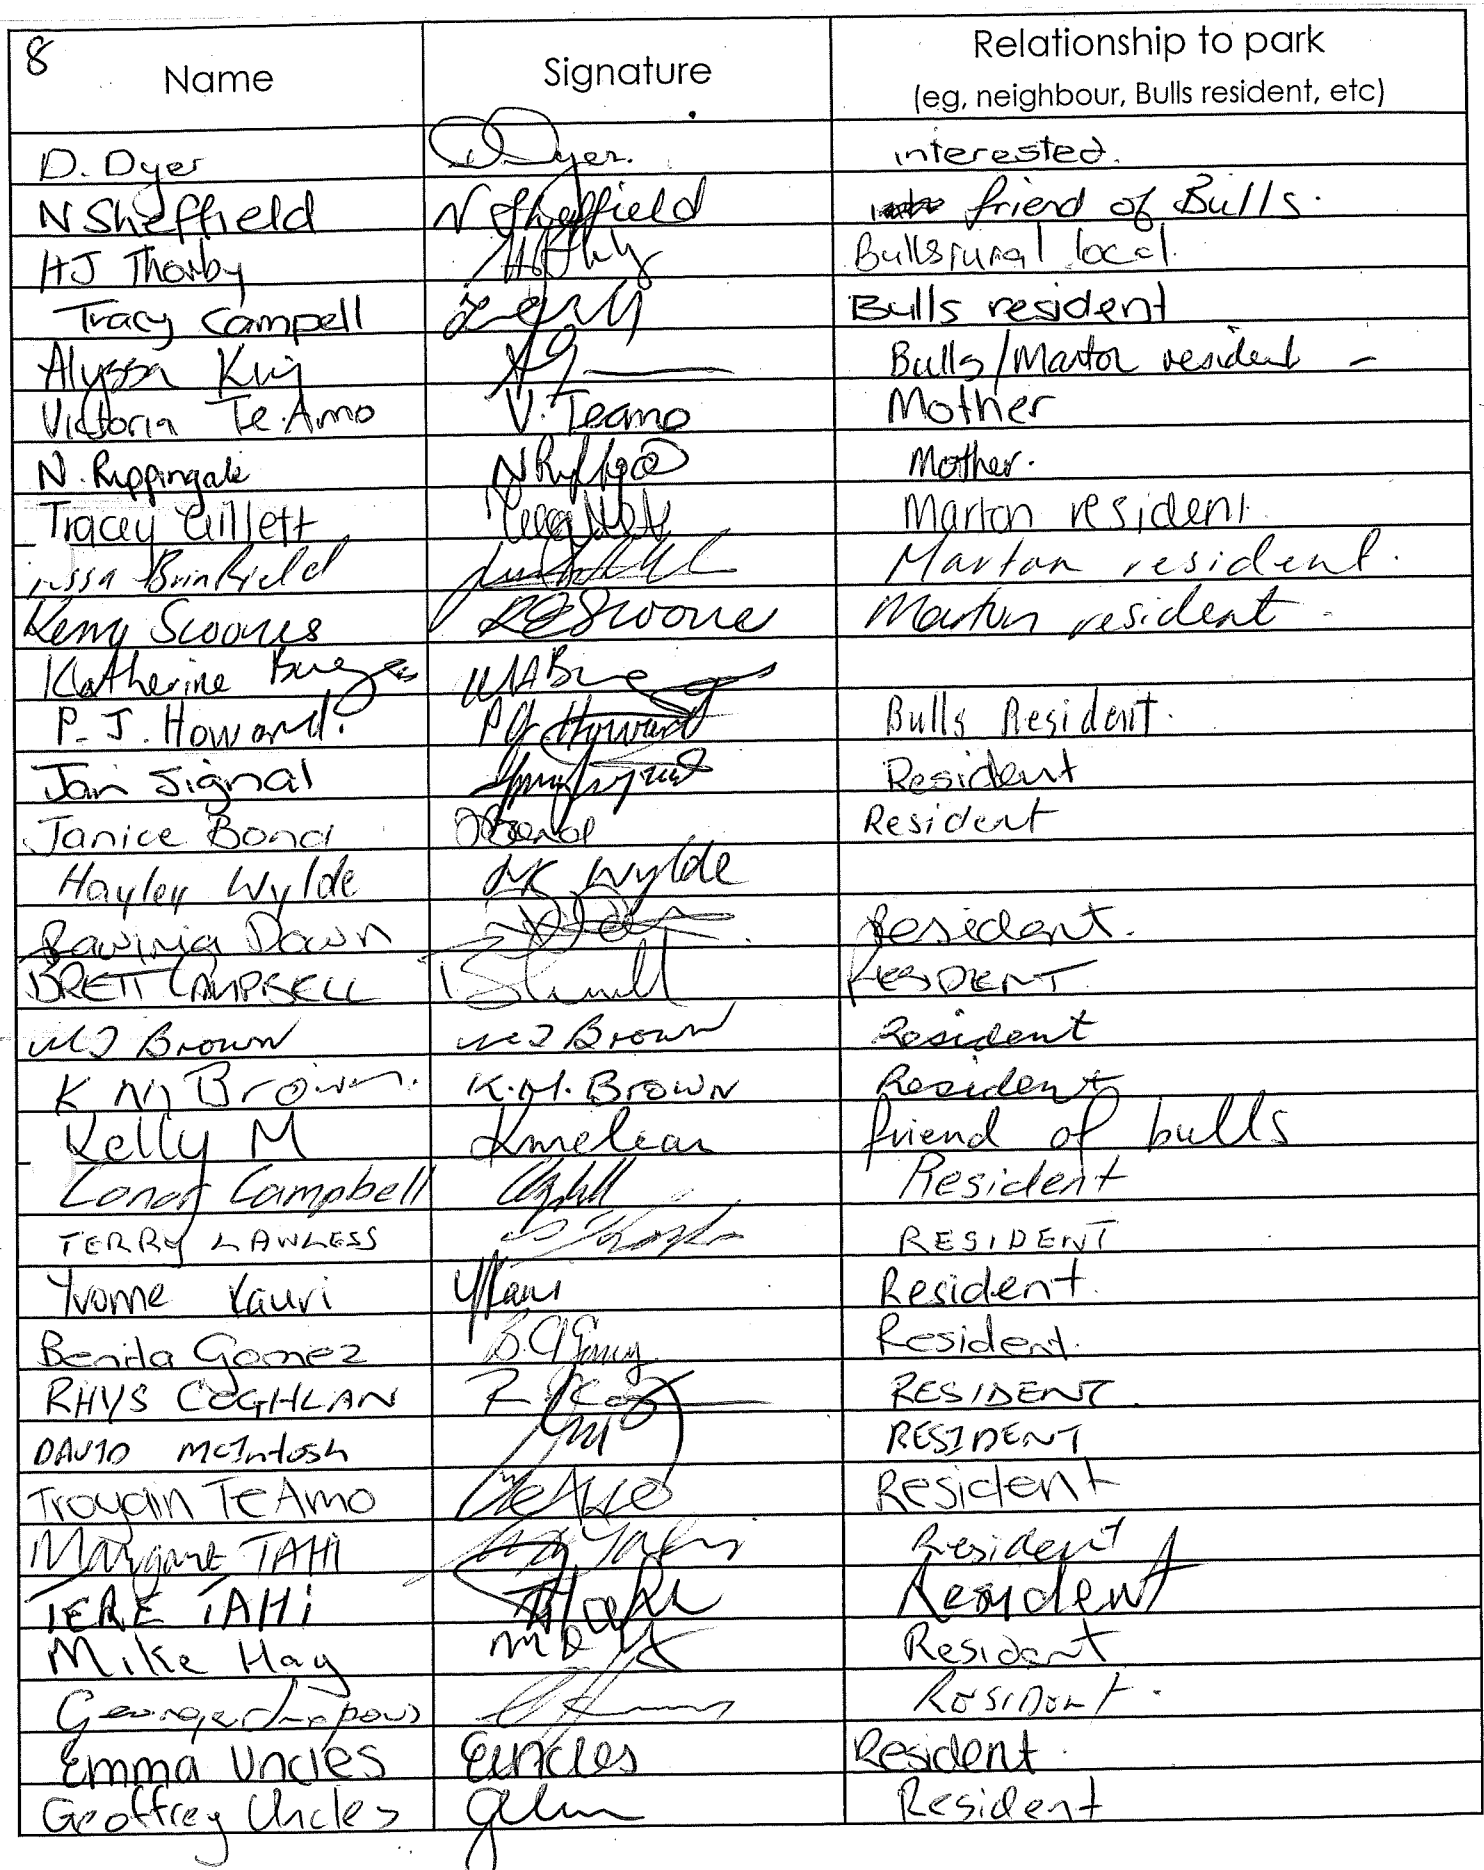 8
Name Signature Relationship to park
(eg, neighbour, Bulls resident, etc)
D. Dyer D Dyer. interested.
N Sheffield N Sheffield friend of Bulls.
HJ Thorby Bulls rural local.
Tracy Campell Bulls resident
Alyssa King Bulls/Marton resident -
Victoria Te Amo V. Teamo Mother
N. Rippingale Mother.
Tracey Gillett Marton resident
Brinkfield Marton resident.
Marton resident.
Katherine
P. J. Howard. PJ Howard Bulls Resident.
Jan Signal Resident
Janice Bond JBond Resident
Hayley Wylde Wylde
Rawinia Down Resident.
BRETT CAMPBELL RESIDENT
MJ Brown MJ Brown Resident
K M Brown. K.M. BROWN Resident
Kelly M Kmclean friend of bulls
Conor Campbell Resident
TERRY LAWLESS RESIDENT
Yvonne Kauri YKauri Resident.
Benita Gomez Resident.
RHYS COGHLAN RESIDENT.
DAVID McIntosh RESIDENT
Troydin Te Amo TeAmo Resident
Margaret TAHI Tahi Resident
TERE TAHi Resident
Mike Hay Resident
George Resident.
Emma Uncles EUncles Resident.
Geoffrey Uncles Resident